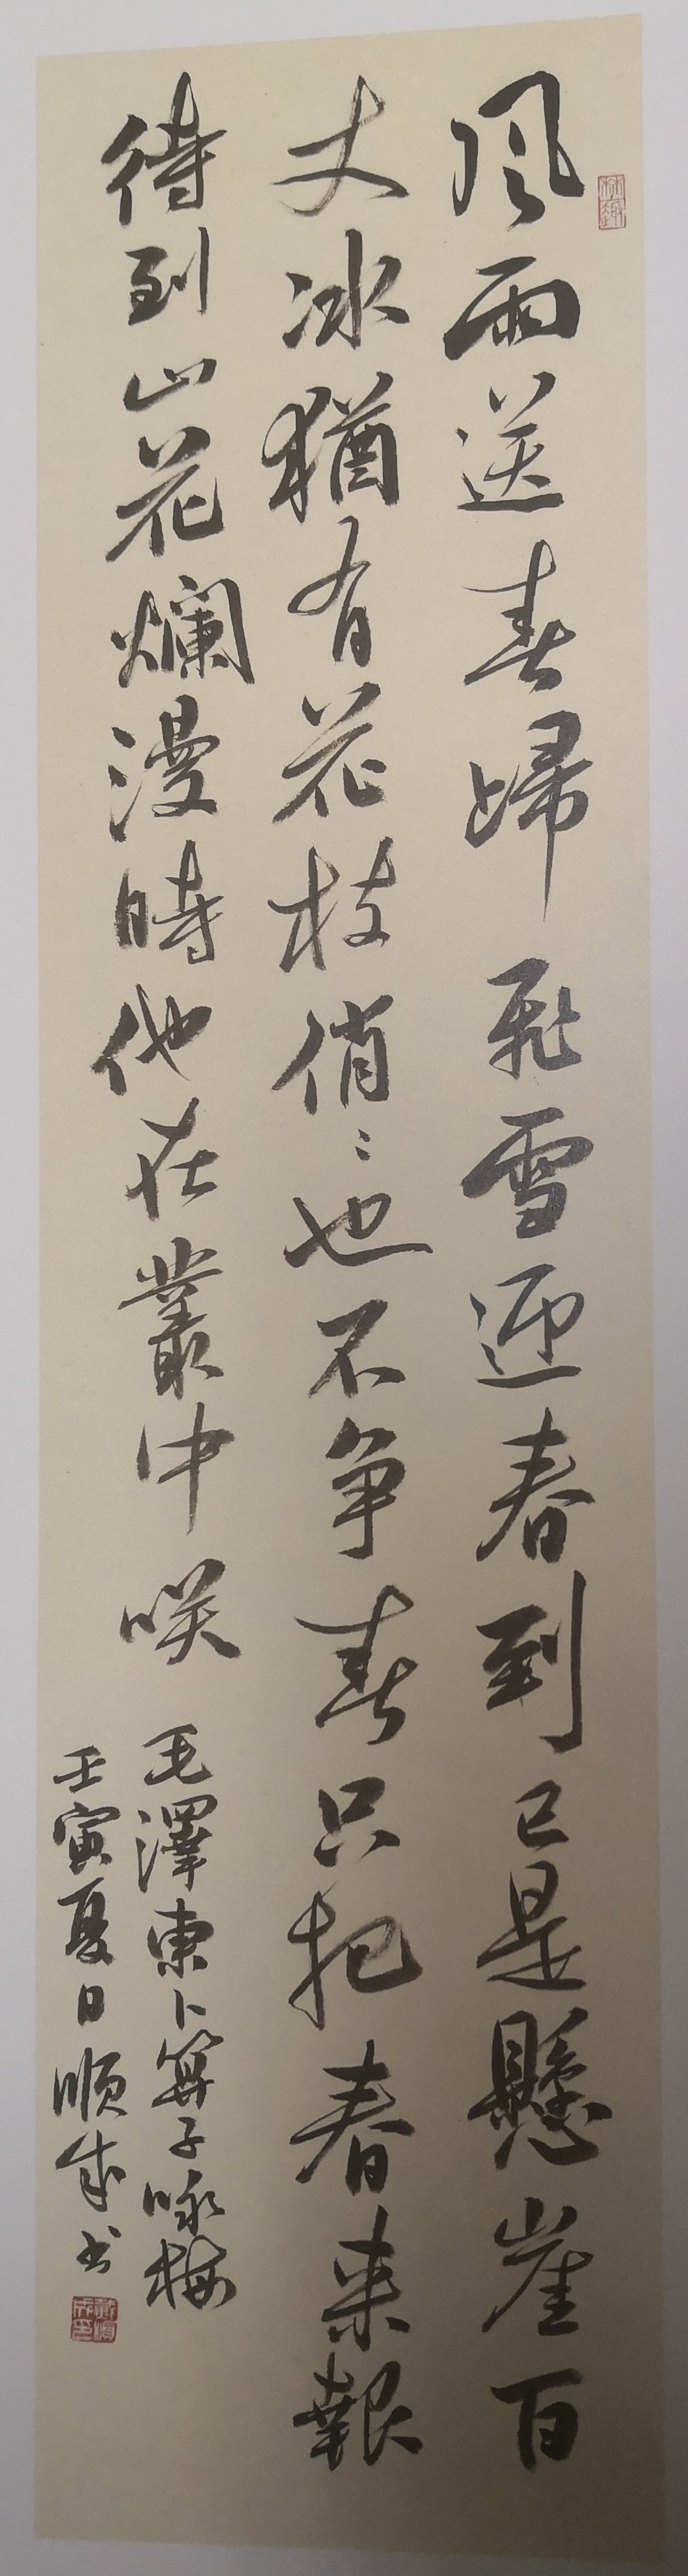 風雨送春歸飛雪迎春到已是懸崖百
丈冰猶有花枝俏〻也不争春只把春来報
待到山花爛漫時他在叢中咲
毛澤東卜算子咏梅
壬寅夏日順成书